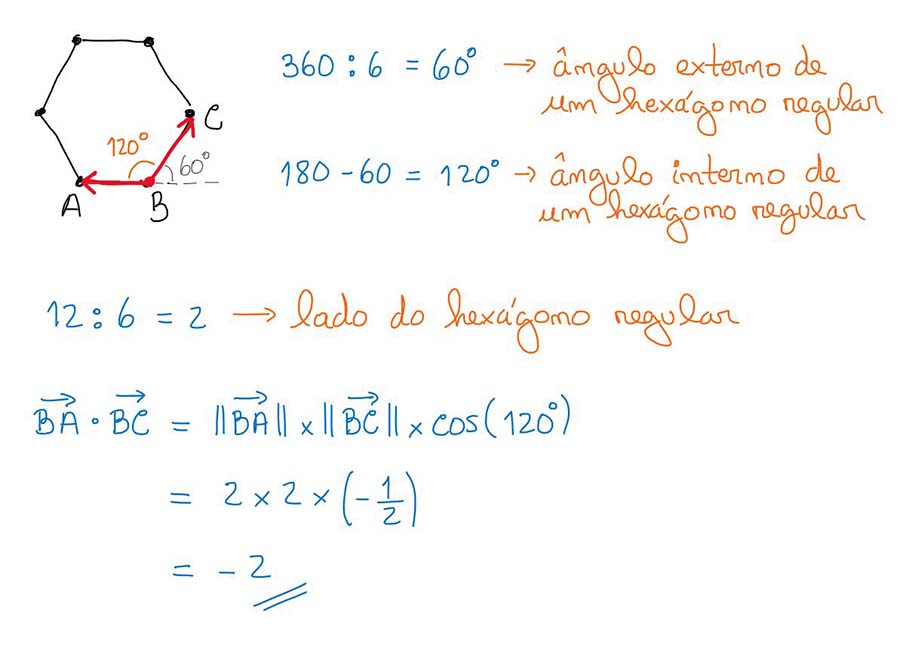 360 : 6 = 60° → ângulo externo de
um hexágono regular
C
120°
60°
A
B
180 - 60 = 120° → ângulo interno de
um hexágono regular
12 : 6 = 2 → lado do hexágono regular
BA · BC = ||BA|| × ||BC|| × cos(120°)
= 2 × 2 × (-1/2)
= -2